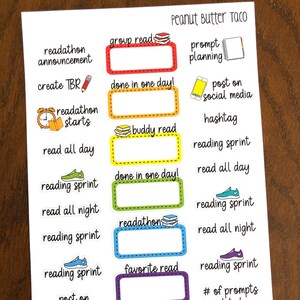 Peanut Butter Taco
readathon
announcement
create TBR
readathon
starts
read all day
reading sprint
read all night
reading sprint
post on
group read
done in one day!
buddy read
done in one day!
readathon
favorite read
prompt
planning
post on
social media
hashtag
reading sprint
read all day
reading sprint
read all night
reading sprint
# of prompts